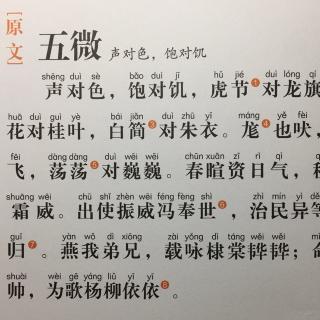 [原文]
五微 声对色，饱对饥
shēng duì sè bǎo duì jī hǔ jié duì lóng qí
声对色，饱对饥，虎节❶对龙旂
huā duì guì yè bái jiǎn duì zhū yī máng yě fèi
花对桂叶，白简❸对朱衣。尨也吠，
fēi dàng dàng duì wēi wēi chūn xuān zī rì qì
飞，荡荡❺对巍巍。春暄资日气，秋
shuāng wēi chū shǐ zhèn wēi féng fèng shì zhì mín yì děng
霜威。出使振威冯奉世❻，治民异等
guī yàn wǒ dì xiōng zài yǒng dì táng wěi wěi mìng
归❼。燕我弟兄，载咏棣棠韡韡；命
shuài wèi gē yáng liǔ yī yī
帅，为歌杨柳依依❽。